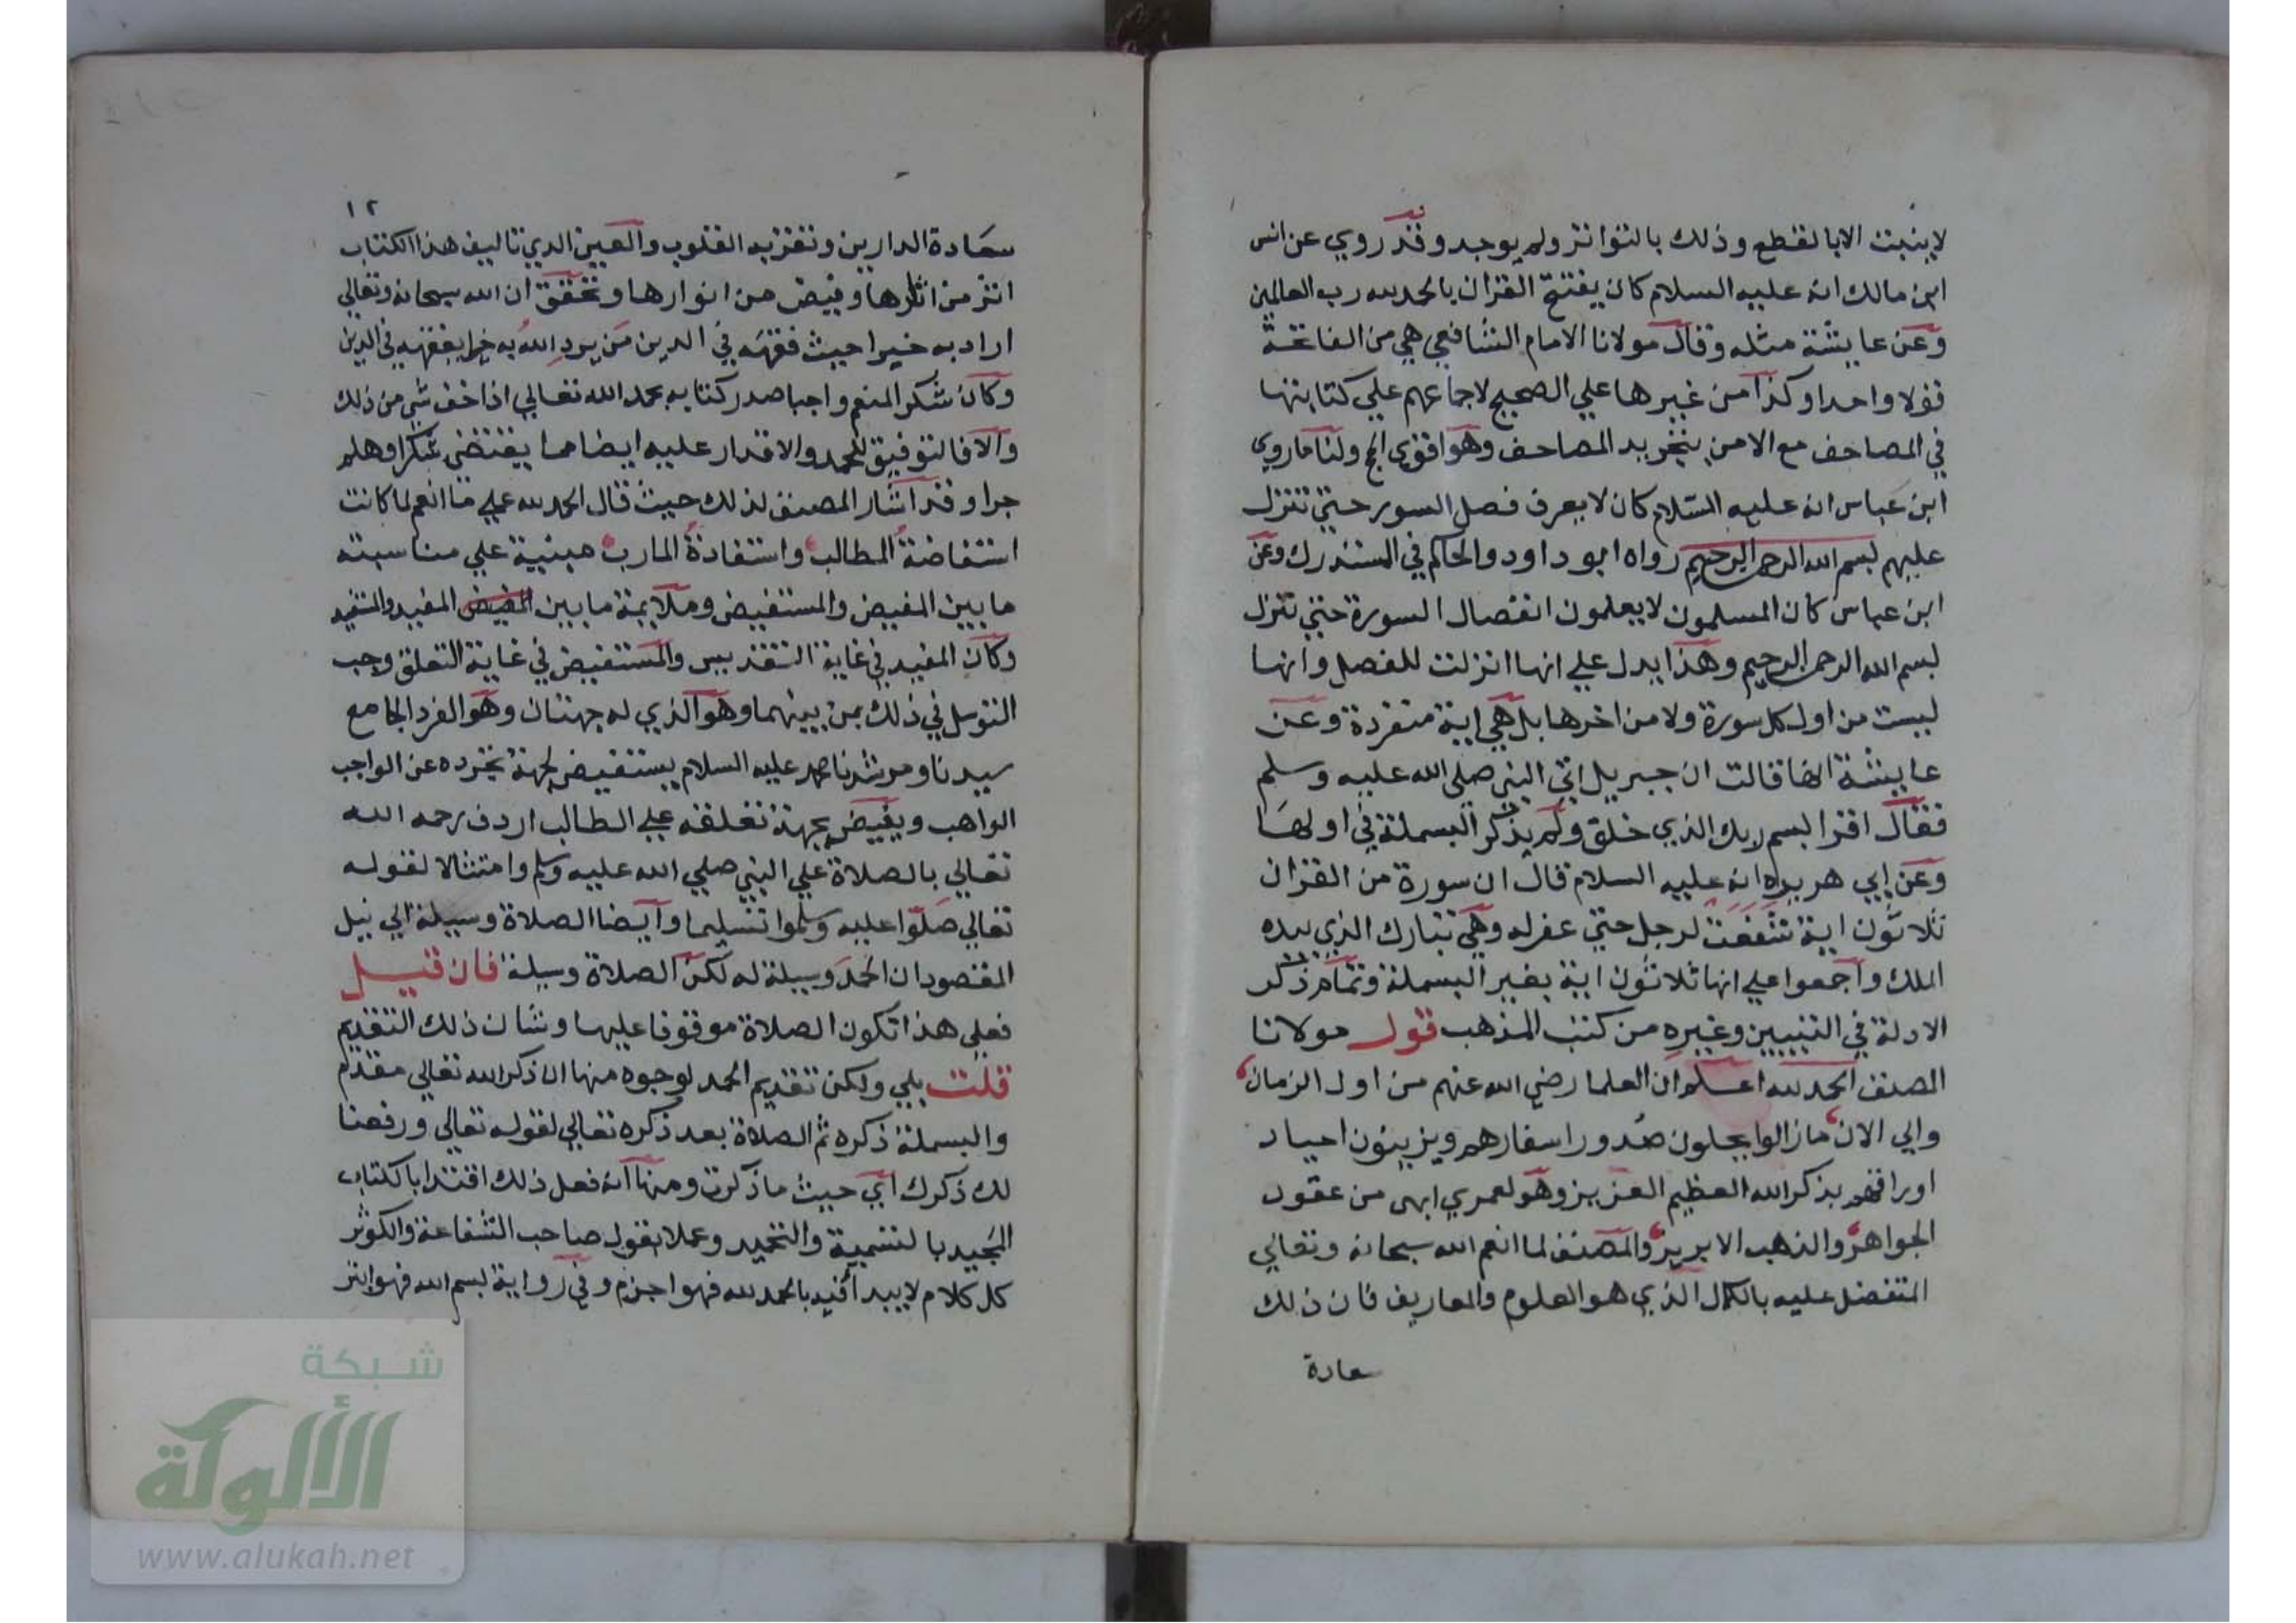 لا يثبت الا بالقطع وذلك بالتواتر ولم يوجد وقد روي عن انس
ابن مالك انه عليه السلام كان يفتتح القران بالحمد لله رب العالمين
وعن عايشة مثله وقال مولانا الامام الشافعي هي من الفاتحة
قولا واحدا وكذا من غيرها علي الصحيح لاجماعهم علي كتابتها
في المصاحف مع الامر بتجريد المصاحف وهو اقوي الحج ولنا ما روي
ابن عباس انه عليه السلام كان لا يعرف فصل السور حتي تنزل
عليهم بسم الله الرحمن الرحيم رواه ابو داود والحاكم في المستدرك وعن
ابن عباس كان المسلمون لا يعلمون انقصال السورة حتي تنزل
بسم الله الرحمن الرحيم وهذا يدل علي انها انزلت للفصل وانها
ليست من اول كل سورة ولا من اخرها بل هي اية منفردة وعن
عايشة انها قالت ان جبريل اتي النبي صلي الله عليه وسلم
فقال اقرا باسم ربك الذي خلق ولم يذكر البسملة في اولها
وعن ابي هريره انه عليه السلام قال ان سورة من القران
ثلاثون اية شفعت لرجل حتي غفر له وهي تبارك الذي بيده
الملك واجمعوا علي انها ثلاثون اية بغير البسملة وتمام ذكر
الادلة في التبيين وغيره من كتب المذهب قول مولانا
المصنف الحمد لله اعلم ان العلما رضي الله عنهم من اول الزمان
والي الان ما زالوا يجلون صدور اسفارهم ويزينون اجياد
اوراقهم بذكر الله العظيم العزيز وهو لعمري ابهي من عقود
الجواهر والذهب الابريز والمصنف لما انعم الله سبحانه وتعالي
المتفضل عليه بالكمال الذي هو العلوم والمعاريف فان ذلك
سعادة
١٢
سعادة الدارين وتقر به القلوب والعين الذي تاليف هذا الكتاب
اثر من اثارها وفيض من انوارها وتحقق ان الله سبحانه وتعالي
اراد به خيرا حيث فقهه في الدين من يرد الله به خيرا يفقهه في الدين
وكان شكر المنعم واجبا صدر كتابه بحمد الله تعالي اذا خف شي من ذلك
والا فالتوفيق للحمد والاقدار عليه ايضا مما يقتضي شكرا وهلم
جرا وقد اشار المصنف لذلك حيث قال الحمد لله علي ما انعم لما كانت
استفاضة المطالب واستفادة المارب مبنية علي مناسبته
ما بين المفيض والمستفيض وملايمة ما بين المفيض المفيد والمستفيد
وكان المفيد في غاية التقديس والمستفيض في غاية التعلق وجب
التوسل في ذلك بمن بينهما وهو الذي له جهتان وهو الفرد الجامع
سيدنا ومرشدنا محمد عليه السلام يستفيض لجهة تجرده عن الواجب
الواهب ويفيض بجهة تعلقه علي الطالب اردف رحمه الله
تعالي بالصلاة علي النبي صلي الله عليه وسلم وامتثالا لقوله
تعالي صلوا عليه وسلموا تسليما وايضا الصلاة وسيلة الي نيل
المقصود ان الحمد وسيلة له لكن الصلاة وسيلة فان قيل
فعلي هذا تكون الصلاة موقوفا عليها وشان ذلك التقديم
قلت بلي ولكن تقديم الحمد لوجوه منها ان ذكر الله تعالي مقدم
والبسملة ذكره ثم الصلاة بعد ذكره تعالي لقوله تعالي ورفعنا
لك ذكرك اي حيث ما ذكرت ومنها انه فعل ذلك اقتدا بالكتاب
المجيد بالتسمية والتحميد وعملا بقول صاحب الشفاعة والكوثر
كل كلام لا يبدا فيه بالحمد لله فهو اجزم وفي رواية بسم الله فهو ابتر
شبكة
الألوكة
www.alukah.net